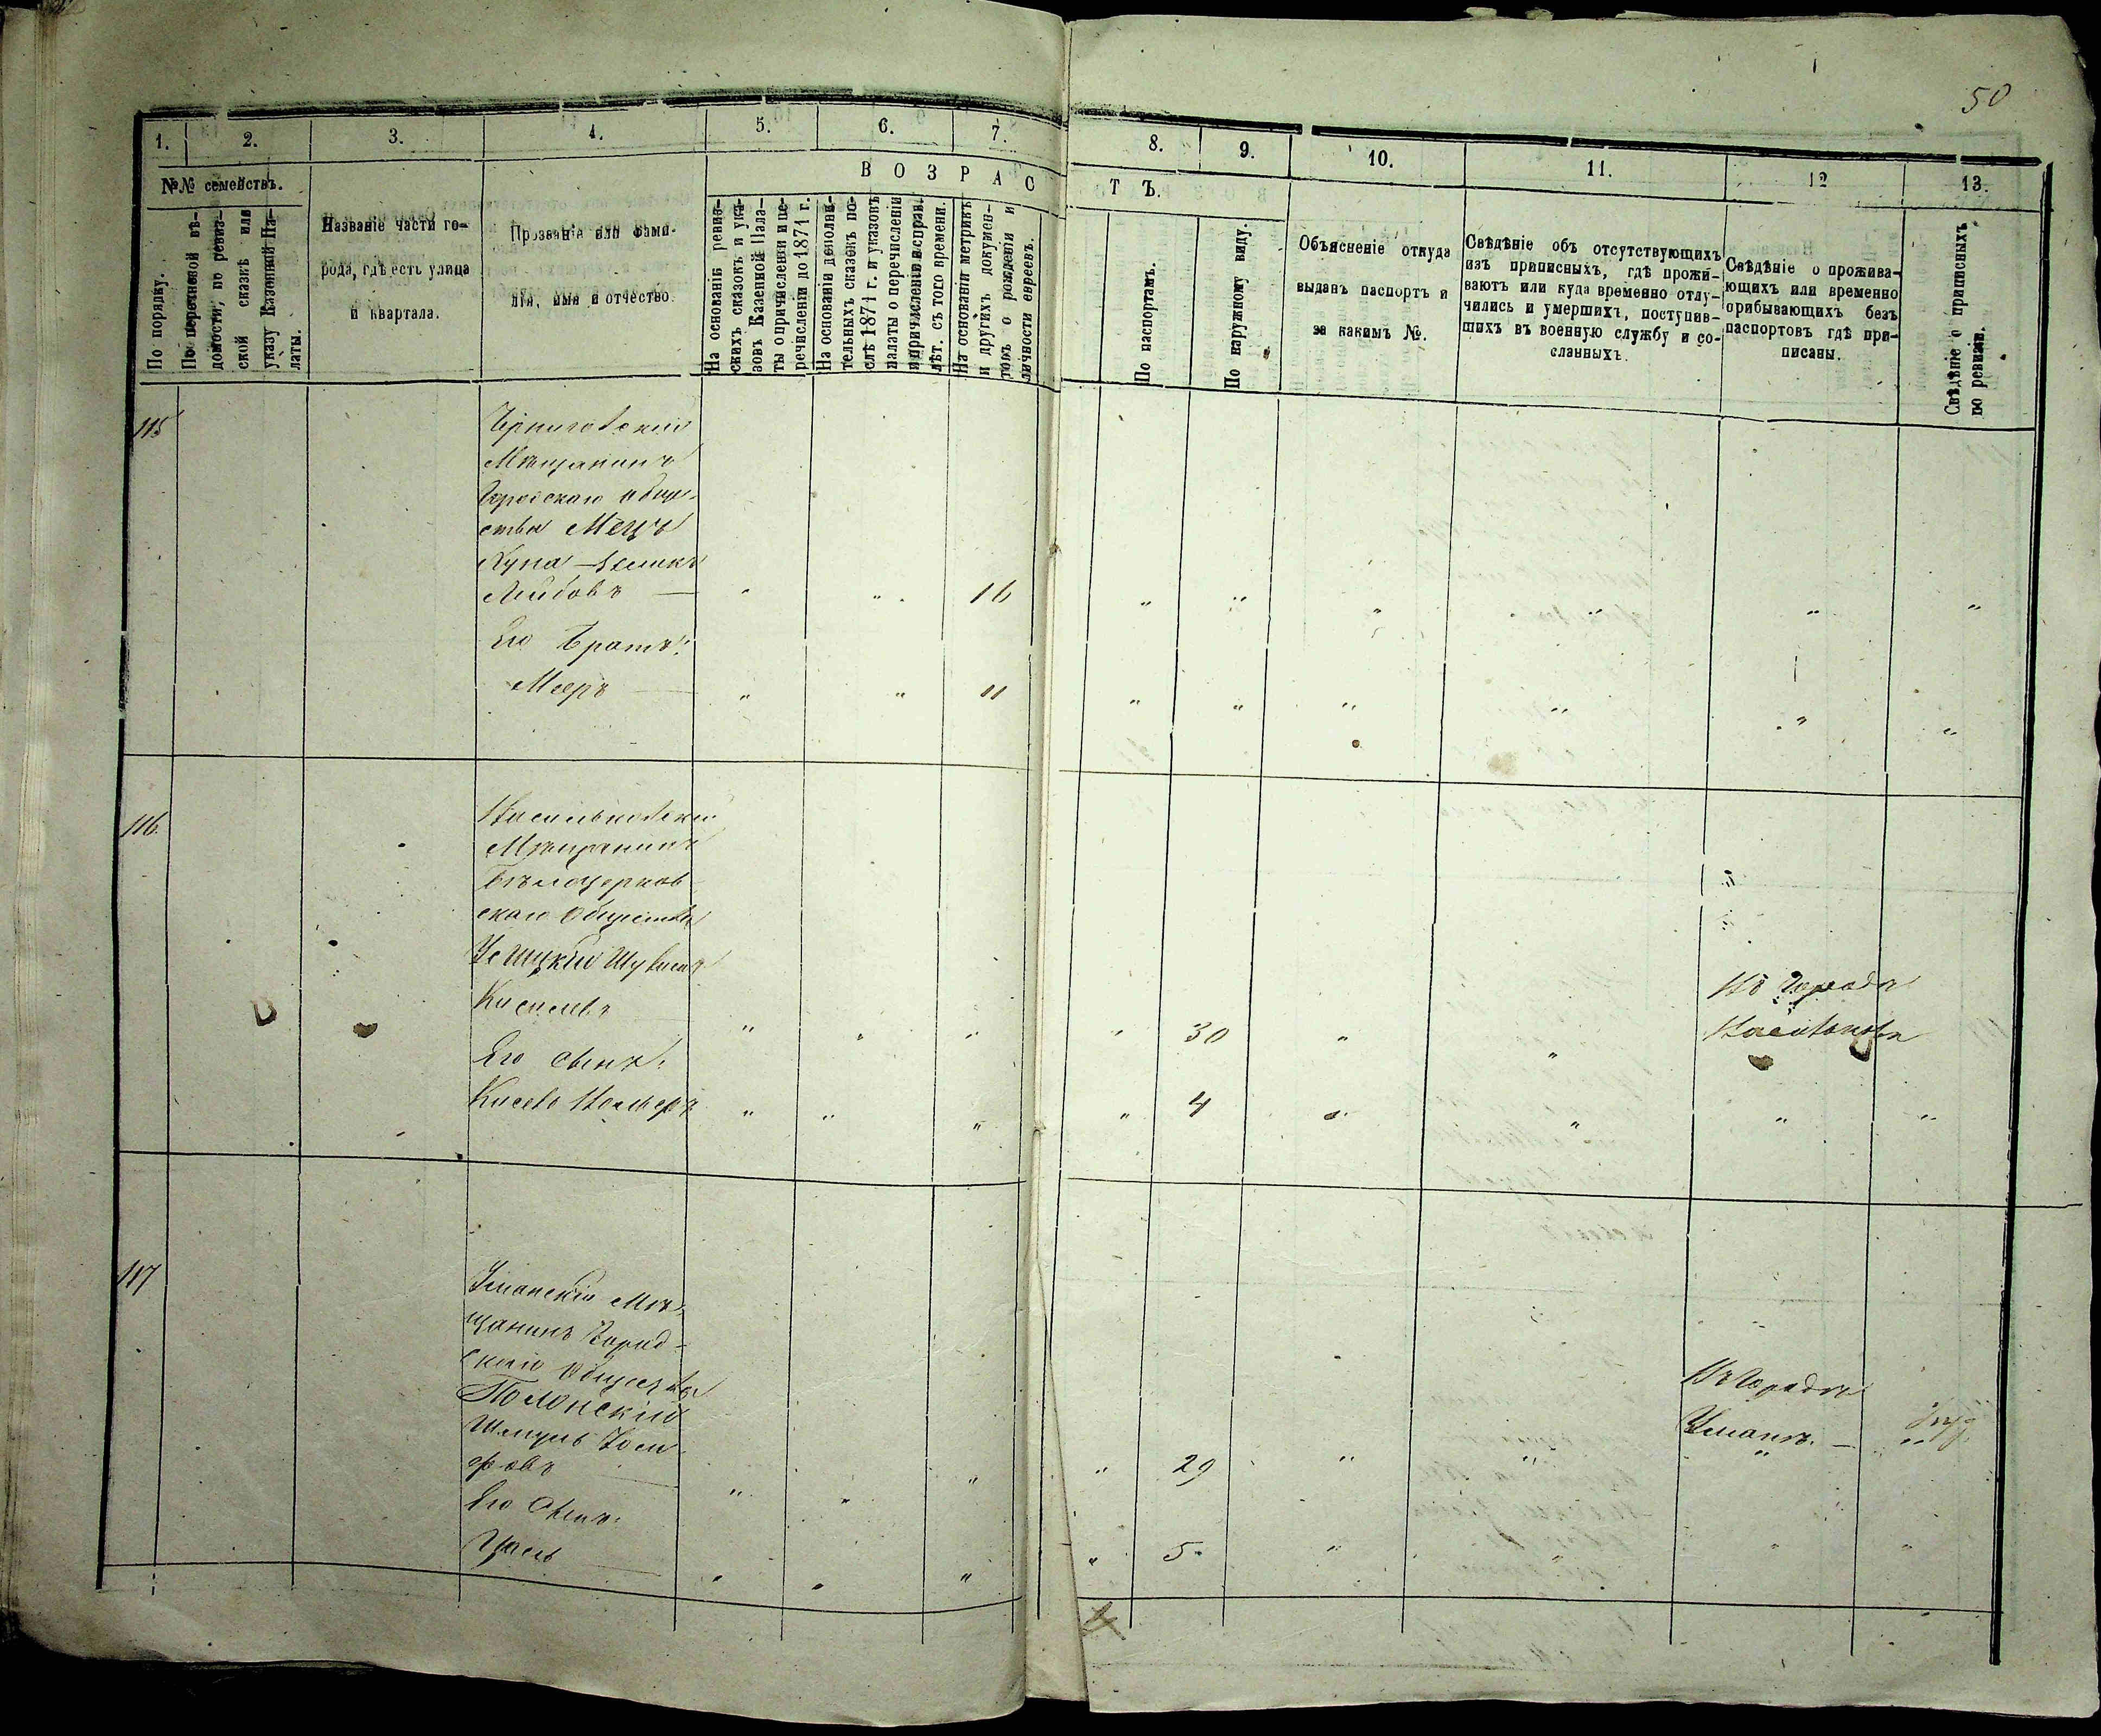 50
1. 2. 3. 4. 5. 6. 7. 8. 9. 10. 11. 12 13.
№№ семействъ.
По порядку.
По перечневой вѣ-
домости, по ревиз-
ской сказкѣ или
указу Казенной Па-
латы.
Названіе части го-
рода, гдѣ есть улица
и квартала.
Прозваніе или фами-
лія, имя и отчество.
ВОЗРАСТЪ.
На основаніи ревиз-
скихъ сказокъ и ука-
зовъ Казенной Пала-
ты о причисленіи и пе-
речисленіи до 1871 г.
На основаніи дополни-
тельныхъ сказокъ по-
слѣ 1871 г. и указовъ
палаты о перечисленіи
и причисленіи и справ.
лѣт. съ того времени.
На основаніи метрикъ
и другихъ докумен-
товъ о рожденіи и
личности евреевъ.
По паспортамъ.
По наружному виду.
Объясненіе откуда
выданъ паспортъ и
за какимъ №.
Свѣдѣніе объ отсутствующихъ
изъ приписныхъ, гдѣ прожи-
ваютъ или куда временно отлу-
чились и умершихъ, поступив-
шихъ въ военную службу и со-
сланныхъ.
Свѣдѣніе о прожива-
ющихъ или временно
прибывающихъ безъ
паспортовъ гдѣ при-
писаны.
Свѣдѣніе о приписныхъ
по ревизіи.
115
Мѣщанинъ
Городскаго обще-
ства Мецъ
Лейбовъ — " " 16 " " " " " "
Его братъ:
Мееръ — " " 11 " " " " " "
116
Васильковскій
Мѣщанинъ
Бѣлоцерков-
скаго Общества
Его сынъ:
" " " " 30 " "
Въ городѣ
" " " " 4 " " " "
117
Уманскій Мѣ-
щанинъ Город-
скаго Общества
Полонскій
Шмуль Іоси-
фовъ — " " " " 29 " " " "
Въ городѣ
Умань. —
Его Сынъ:
" " " " 5 " " " "